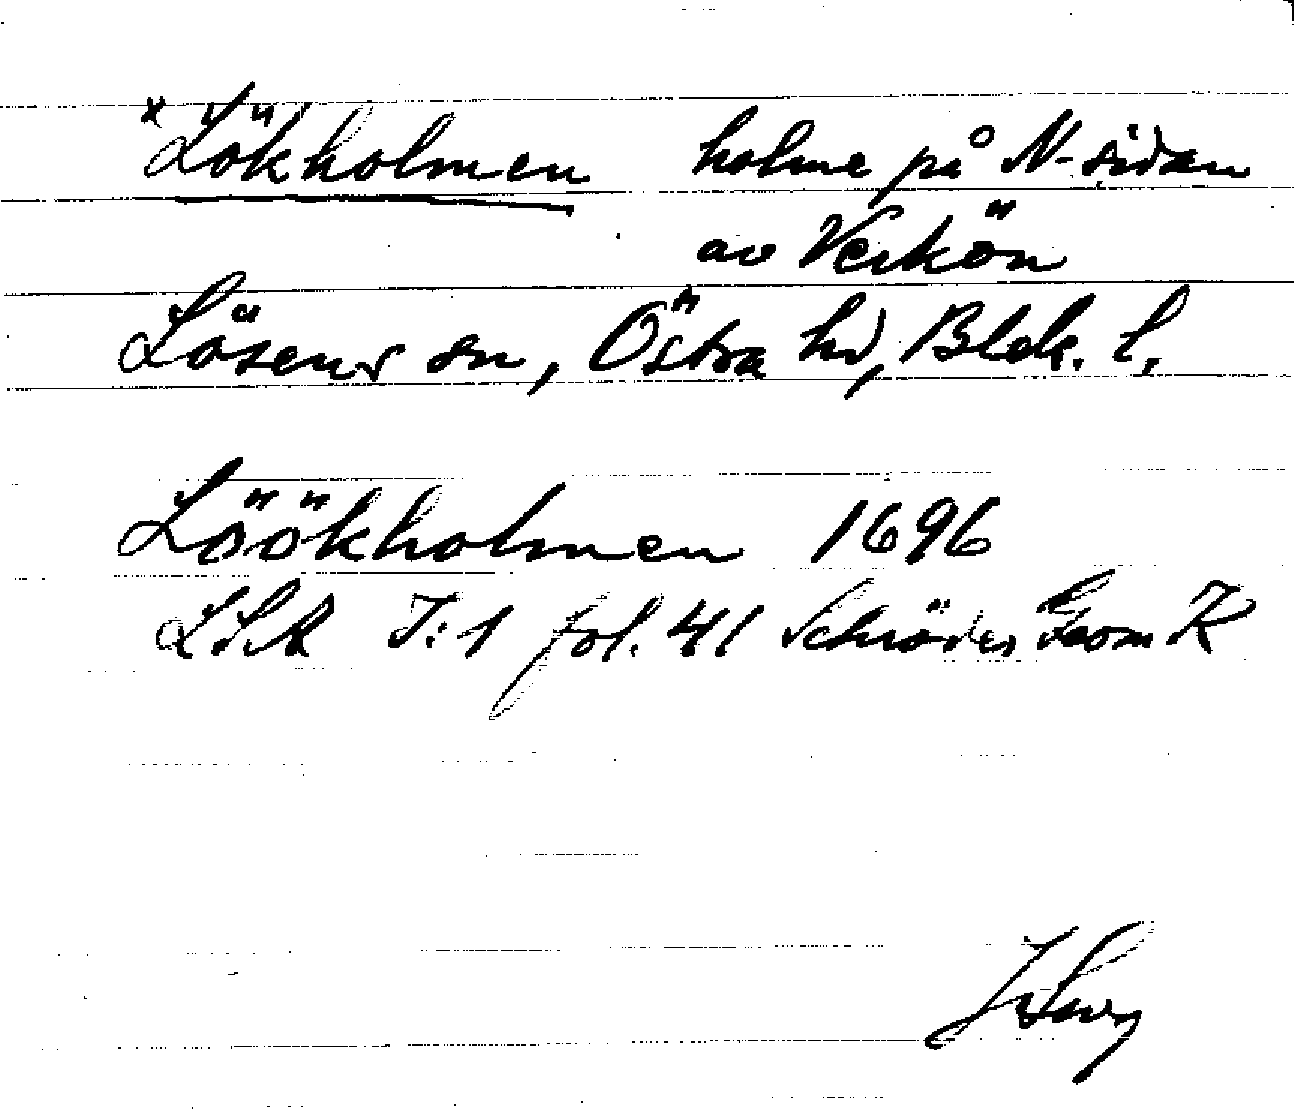 *Lökholmen holme på N-sidan
av Verkön
Lösens sn, Östra hd, Blek. l.
Löökholmen 1696
LSA J:1 fol. 41 Schröder Geom K